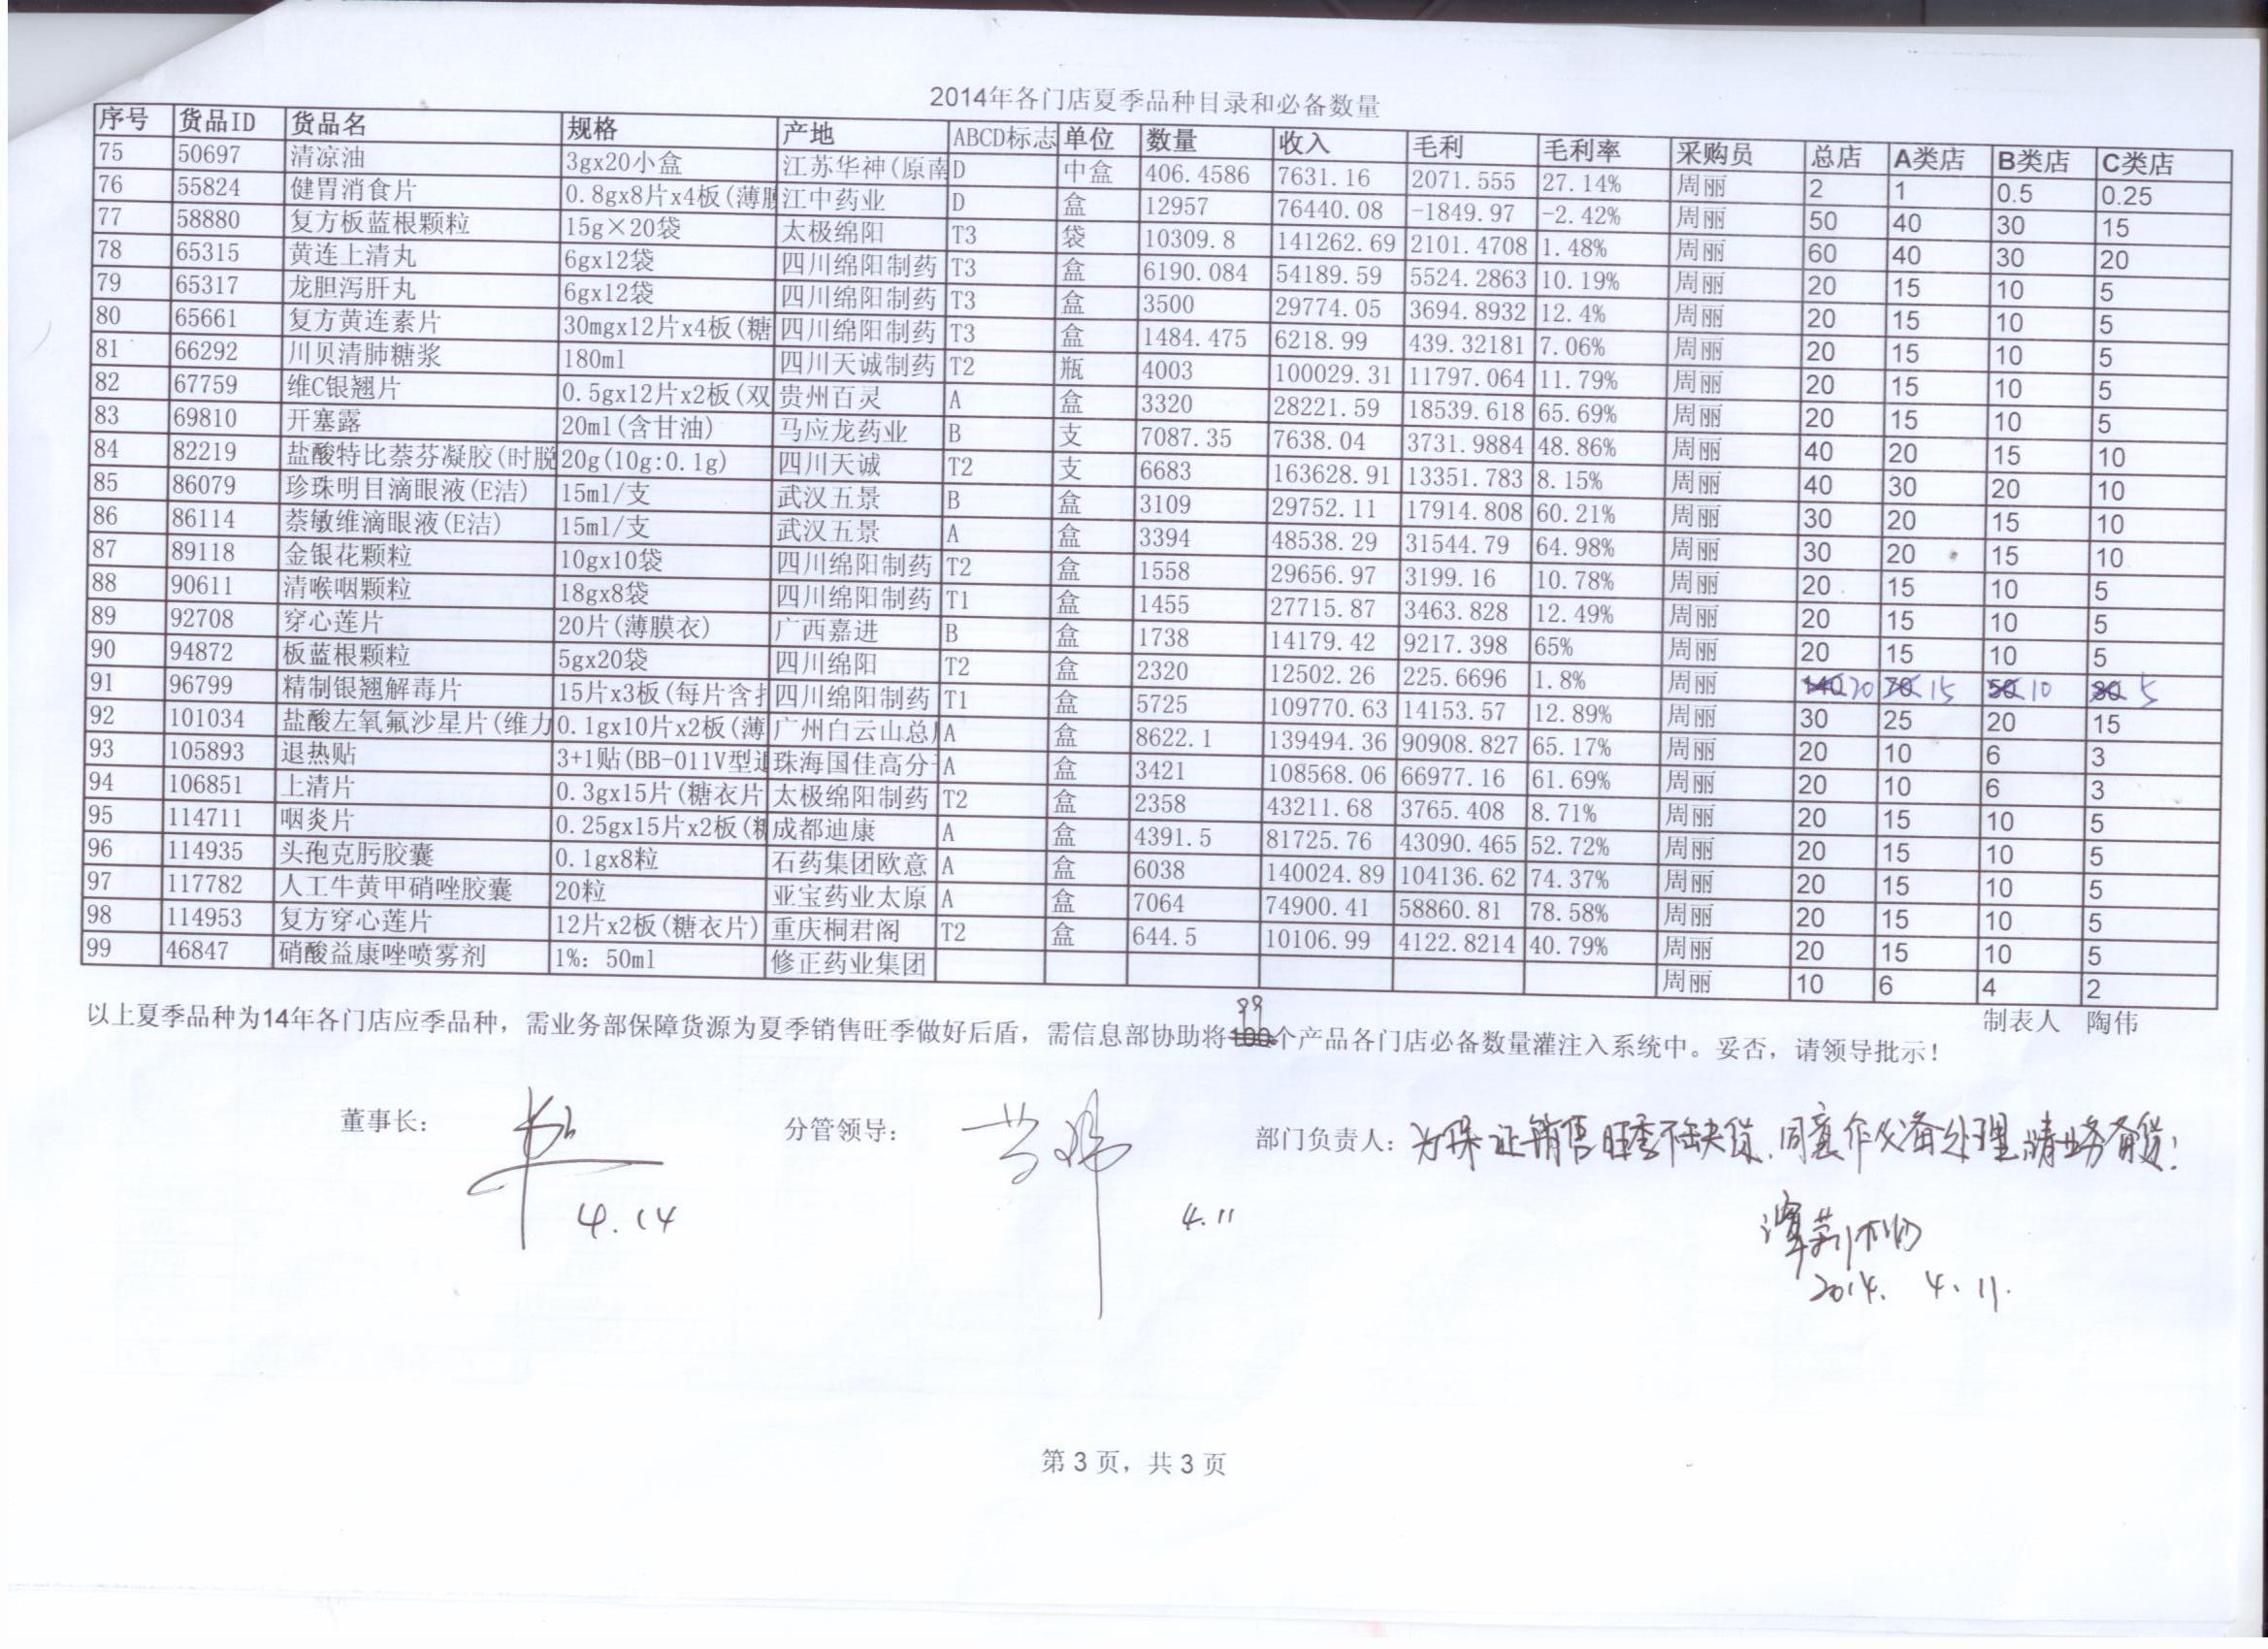 2014年各门店夏季品种目录和必备数量
序号 货品ID 货品名 规格 产地 ABCD标志 单位 数量 收入 毛利 毛利率 采购员 总店 A类店 B类店 C类店
75 50697 清凉油 3gx20小盒 江苏华神(原南 D 中盒 406.4586 7631.16 2071.555 27.14% 周丽 2 1 0.5 0.25
76 55824 健胃消食片 0.8gx8片x4板(薄膜 江中药业 D 盒 12957 76440.08 -1849.97 -2.42% 周丽 50 40 30 15
77 58880 复方板蓝根颗粒 15g×20袋 太极绵阳 T3 袋 10309.8 141262.69 2101.4708 1.48% 周丽 60 40 30 20
78 65315 黄连上清丸 6gx12袋 四川绵阳制药 T3 盒 6190.084 54189.59 5524.2863 10.19% 周丽 20 15 10 5
79 65317 龙胆泻肝丸 6gx12袋 四川绵阳制药 T3 盒 3500 29774.05 3694.8932 12.4% 周丽 20 15 10 5
80 65661 复方黄连素片 30mgx12片x4板(糖 四川绵阳制药 T3 盒 1484.475 6218.99 439.32181 7.06% 周丽 20 15 10 5
81 66292 川贝清肺糖浆 180ml 四川天诚制药 T2 瓶 4003 100029.31 11797.064 11.79% 周丽 20 15 10 5
82 67759 维C银翘片 0.5gx12片x2板(双 贵州百灵 A 盒 3320 28221.59 18539.618 65.69% 周丽 20 15 10 5
83 69810 开塞露 20ml(含甘油) 马应龙药业 B 支 7087.35 7638.04 3731.9884 48.86% 周丽 40 20 15 10
84 82219 盐酸特比萘芬凝胶(时脱 20g(10g:0.1g) 四川天诚 T2 支 6683 163628.91 13351.783 8.15% 周丽 40 30 20 10
85 86079 珍珠明目滴眼液(E洁) 15ml/支 武汉五景 B 盒 3109 29752.11 17914.808 60.21% 周丽 30 20 15 10
86 86114 萘敏维滴眼液(E洁) 15ml/支 武汉五景 A 盒 3394 48538.29 31544.79 64.98% 周丽 30 20 15 10
87 89118 金银花颗粒 10gx10袋 四川绵阳制药 T2 盒 1558 29656.97 3199.16 10.78% 周丽 20 15 10 5
88 90611 清喉咽颗粒 18gx8袋 四川绵阳制药 T1 盒 1455 27715.87 3463.828 12.49% 周丽 20 15 10 5
89 92708 穿心莲片 20片(薄膜衣) 广西嘉进 B 盒 1738 14179.42 9217.398 65% 周丽 20 15 10 5
90 94872 板蓝根颗粒 5gx20袋 四川绵阳 T2 盒 2320 12502.26 225.6696 1.8% 周丽 140 20 70 15 50 10 30 5
91 96799 精制银翘解毒片 15片x3板(每片含扌 四川绵阳制药 T1 盒 5725 109770.63 14153.57 12.89% 周丽 30 25 20 15
92 101034 盐酸左氧氟沙星片(维力 0.1gx10片x2板(薄 广州白云山总 A 盒 8622.1 139494.36 90908.827 65.17% 周丽 20 10 6 3
93 105893 退热贴 3+1贴(BB-011V型退 珠海国佳高分 A 盒 3421 108568.06 66977.16 61.69% 周丽 20 10 6 3
94 106851 上清片 0.3gx15片(糖衣片 太极绵阳制药 T2 盒 2358 43211.68 3765.408 8.71% 周丽 20 15 10 5
95 114711 咽炎片 0.25gx15片x2板(糖 成都迪康 A 盒 4391.5 81725.76 43090.465 52.72% 周丽 20 15 10 5
96 114935 头孢克肟胶囊 0.1gx8粒 石药集团欧意 A 盒 6038 140024.89 104136.62 74.37% 周丽 20 15 10 5
97 117782 人工牛黄甲硝唑胶囊 20粒 亚宝药业太原 A 盒 7064 74900.41 58860.81 78.58% 周丽 20 15 10 5
98 114953 复方穿心莲片 12片x2板(糖衣片) 重庆桐君阁 T2 盒 644.5 10106.99 4122.8214 40.79% 周丽 20 15 10 5
99 46847 硝酸益康唑喷雾剂 1%: 50ml 修正药业集团 周丽 10 6 4 2
制表人 陶伟
99
以上夏季品种为14年各门店应季品种，需业务部保障货源为夏季销售旺季做好后盾，需信息部协助将100个产品各门店必备数量灌注入系统中。妥否，请领导批示！
董事长： 分管领导： 部门负责人：为保证销售旺季不缺货，同意作必备处理，请业务备货！
4.14 4.11
2014. 4. 11.
第 3 页，共 3 页